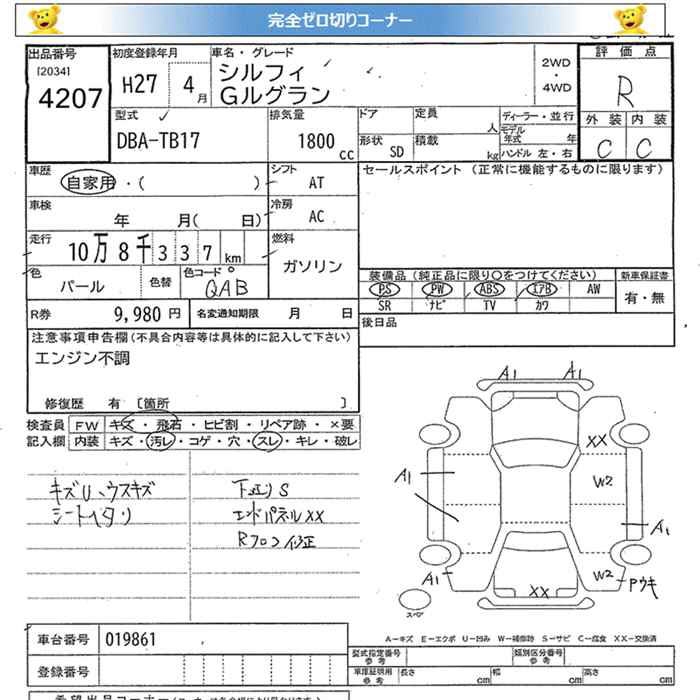 完全ゼロ切りコーナー
出品番号 [2034] 4207
初度登録年月 H27 4月
車名・グレード シルフィ Gルグラン
2WD ・ 4WD
評価点 R
外装 C 内装 C
型式 DBA-TB17
排気量 1800cc
ドア 定員 人
形状 SD 積載 kg
ディーラー・並行
モデル年式 年
ハンドル 左・右
車歴 自家用・( )
シフト AT
セールスポイント (正常に機能するものに限ります)
車検 年 月( 日)
冷房 AC
走行 10万8千337km
燃料 ガソリン
色 パール 色替 色コード QAB
装備品(純正品に限り○をつけてください) 新車保証書
PS PW ABS エアB AW 有・無
SR ナビ TV カワ
R券 9,980円 名変通知期限 月 日
後日品
注意事項申告欄(不具合内容等は具体的に記入して下さい)
エンジン不調
修復歴 有 [箇所 ]
検査員 FW キズ・飛石・ヒビ割・リペア跡・×要
記入欄 内装 キズ・汚レ・コゲ・穴・スレ・キレ・破レ
キズU、ウスキズ
シートヘタリ
下廻りS
エンドパネルXX
Rフロア修正
A1 A1
XX
A1 W2
A1
A1 W2 Pウキ
XX
スペア
A-キズ E-エクボ U-凹み W-補修跡 S-サビ C-腐食 XX-交換済
車台番号 019861
登録番号
型式指定番号 参考 類別区分番号 参考
車庫証明用 参考 長さ cm 幅 cm 高さ cm